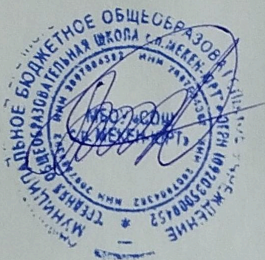 МУНИЦИПАЛЬНОЕ БЮДЖЕТНОЕ ОБЩЕОБРАЗОВАТЕЛЬНОЕ УЧРЕЖДЕНИЕ
"СРЕДНЯЯ ОБЩЕОБРАЗОВАТЕЛЬНАЯ ШКОЛА с.п. МЕКЕН-ЮРТ" ОГРН 1092035000452
МБОУ «СОШ
с.п. МЕКЕН-ЮРТ»